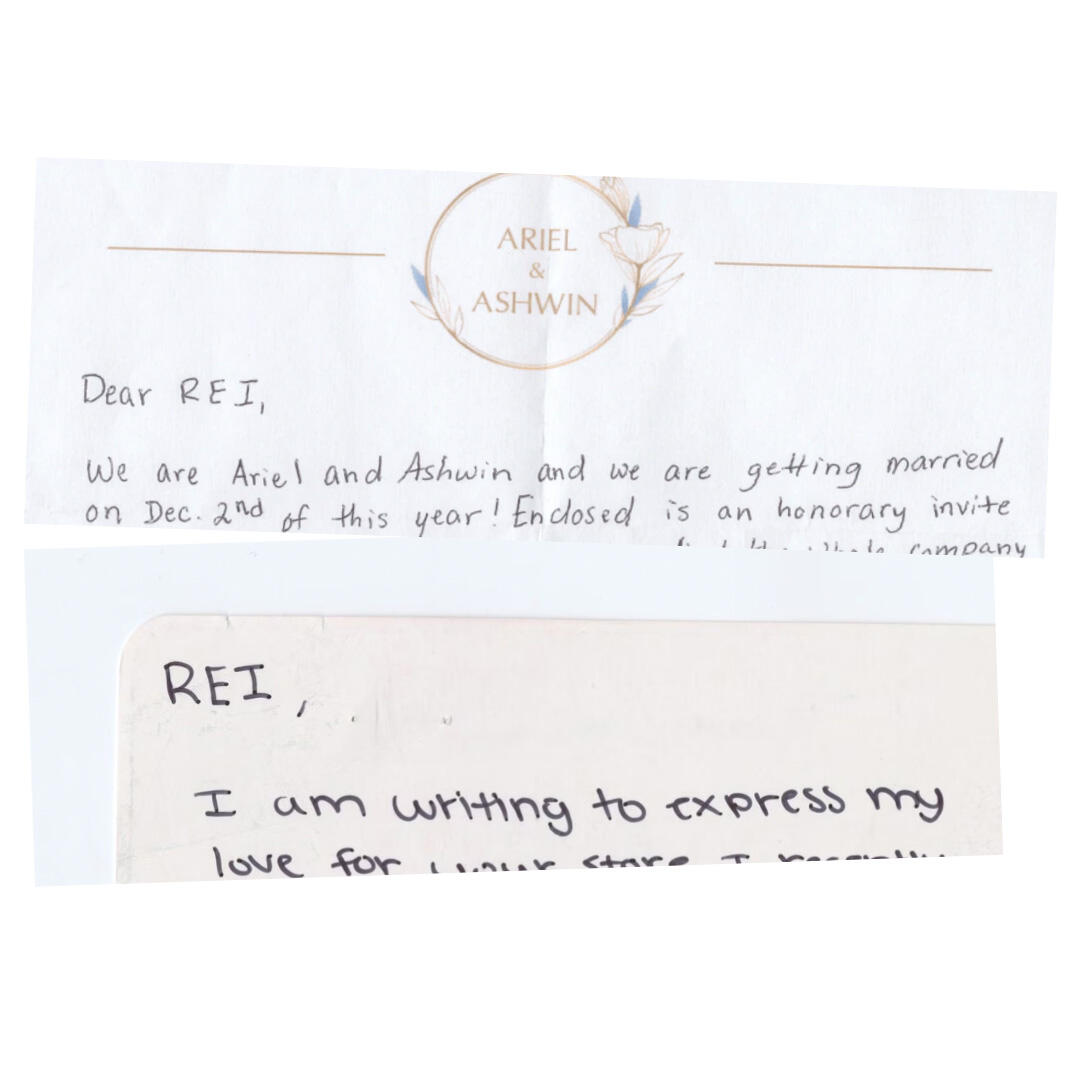 ARIEL
&
ASHWIN
Dear REI,
We are Ariel and Ashwin and we are getting married
on Dec. 2nd of this year! Enclosed is an honorary invite
whole company
REI,
I am writing to express my
love for your store I recently